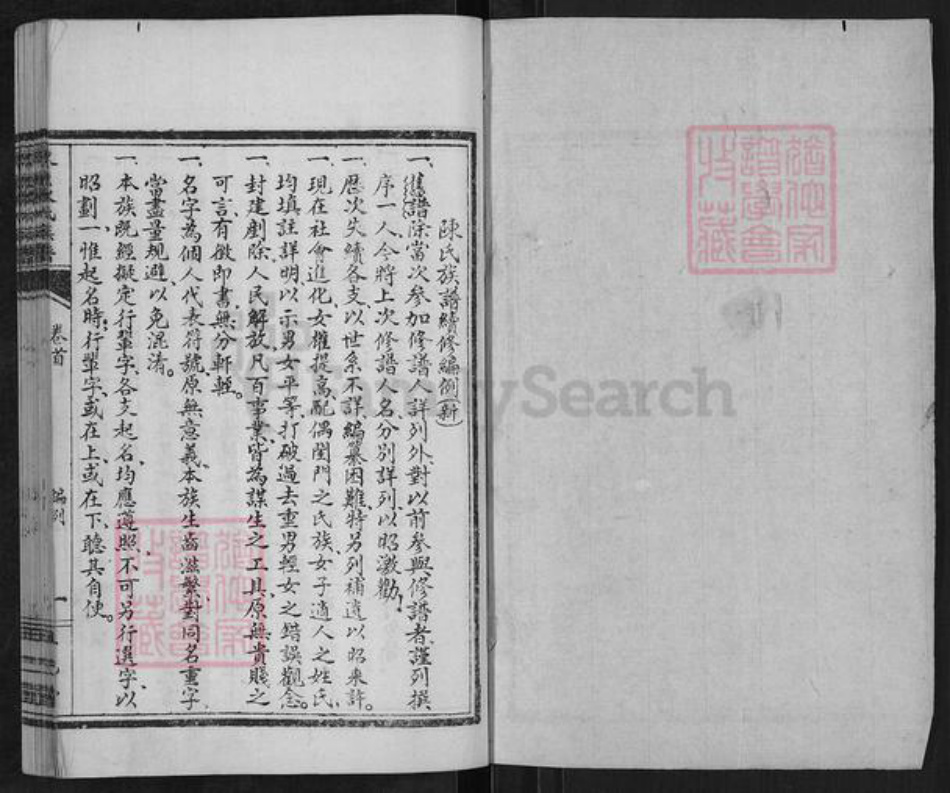 陳氏族譜續修編例(新)
一、舊譜除當次參加修譜人詳列外、對以前參與修譜者、謹列撰
序一人、今將上次修譜人名、分別詳列、以昭激勸。
一、歷次失續各支、以世系不詳、編纂困難、特另列補遺以昭來許。
一、現在社會進化、女權提高、配偶閨門之氏族、女子適人之姓氏、
均填註詳明、以示男女平等、打破過去重男輕女之錯誤觀念。
一、封建剷除、人民解放、凡百事業、皆為謀生之工具、原無貴賤之
可言、有徵即書、無分軒輊。
一、名字為個人代表符號、原無意義、本族生齒滋繁、對同名重字、
當盡量規避、以免混淆。
一、本族既經擬定行輩字、各支起名、均應遵照、不可另行選字、以
昭劃一、惟起名時、行輩字、或在上、或在下、聽其自便。
卷首
編列
一
FamilySearch